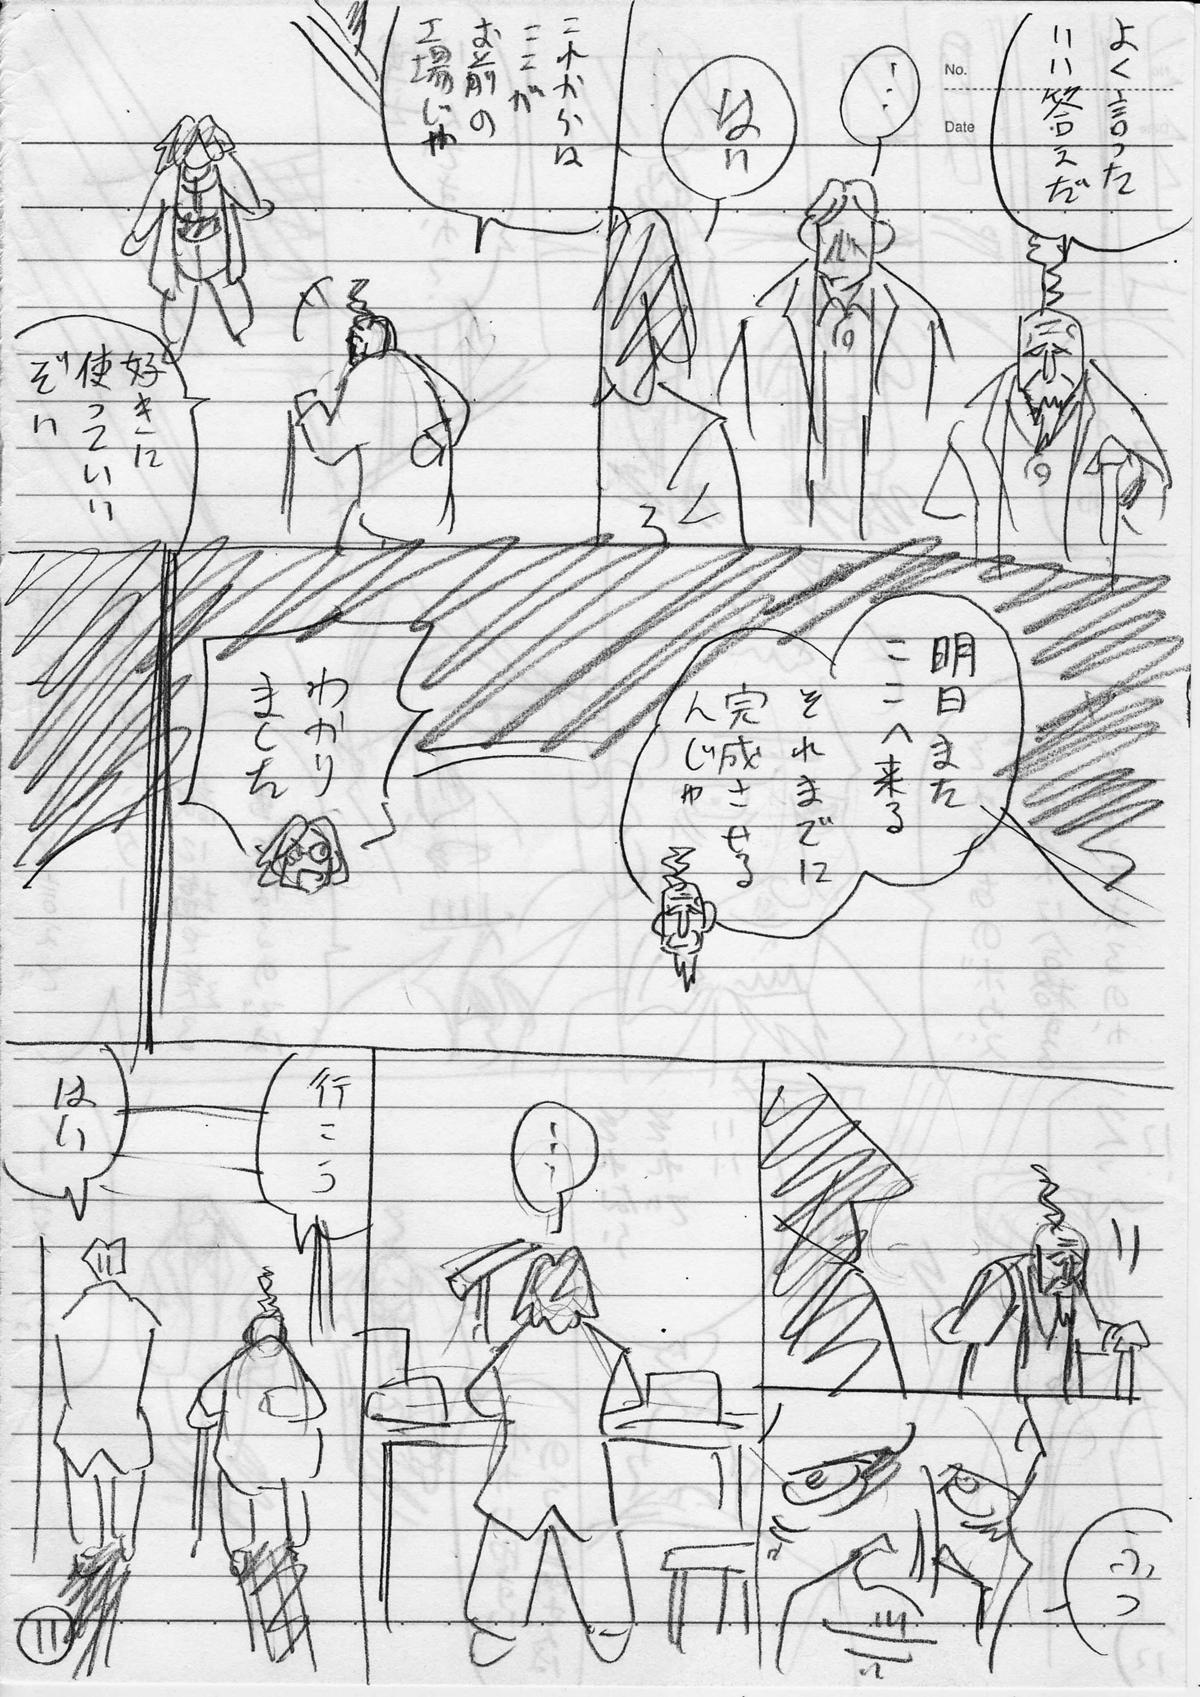 No.
Date
よく言った
いい答えだ
…
はい
これからは
ここが
お前の
工場じゃ
好きに
使っていい
ぞい
明日また
ここへ来る
それまでに
完成させる
んじゃ
わかり
ました
ふっ
…
行こう
はい
11